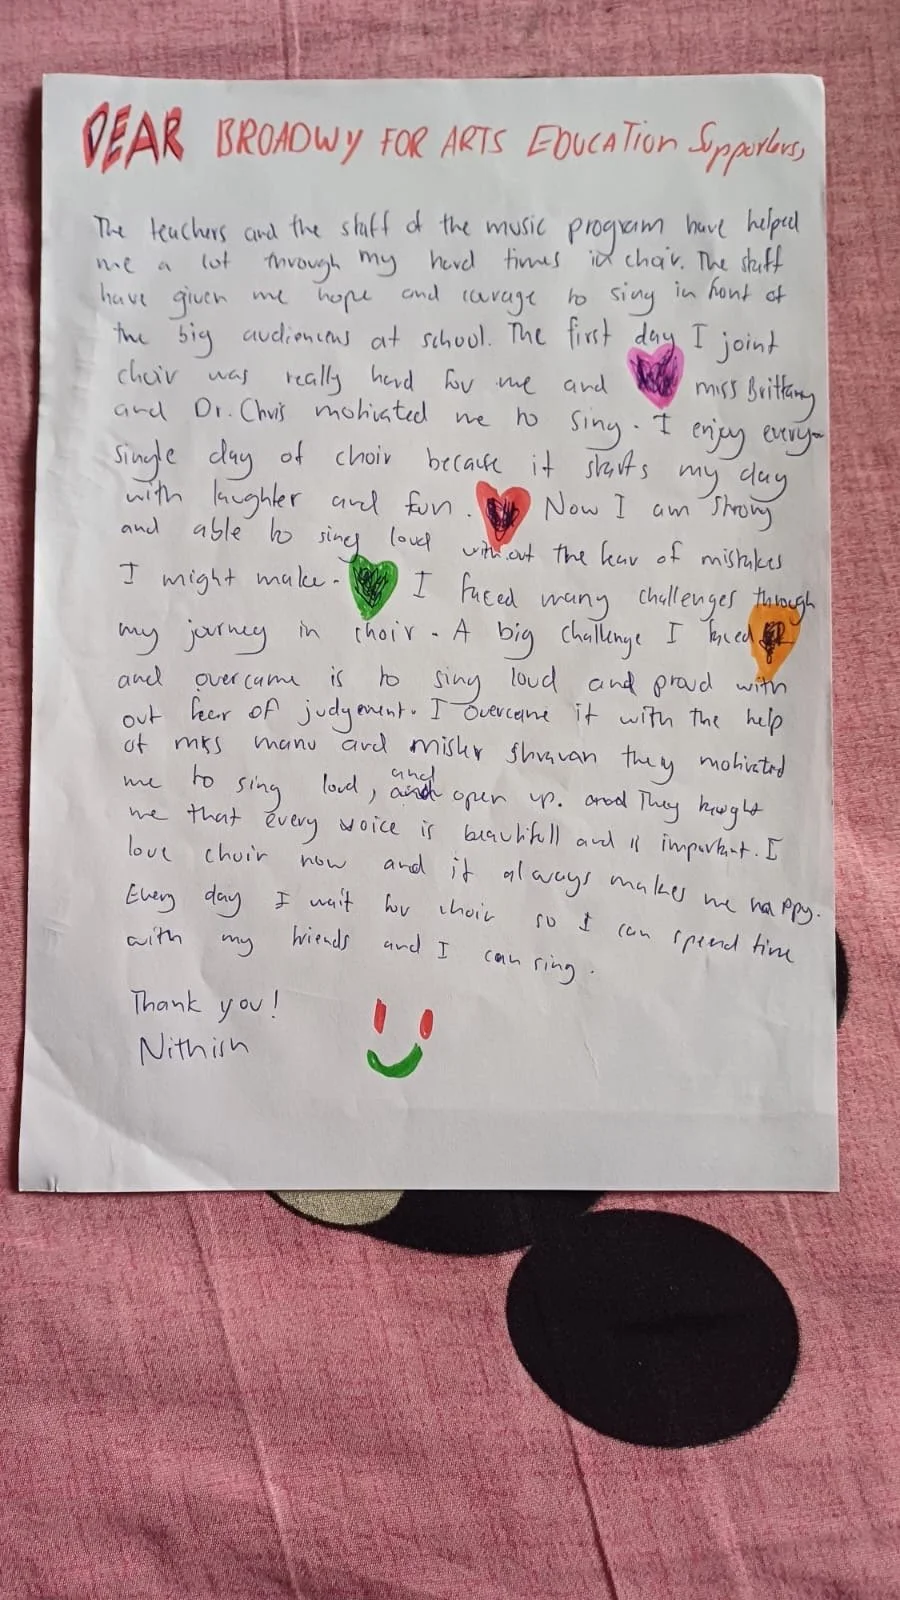 DEAR BROADWY FOR ARTS EDUCATION Supporters,
The teachers and the staff of the music program have helped
me a lot through my hard times in choir. The staff
have given me hope and courage to sing in front of
the big audiences at school. The first day I joint
choir was really hard for me and miss Brittany
and Dr. Chris motivated me to sing. I enjoy every-
single day of choir because it starts my day
with laughter and fun. Now I am strong
and able to sing loud without the fear of mistakes
I might make. I faced many challenges through
my journey in choir. A big challenge I faced
and overcame is to sing loud and proud with
out fear of judgement. I overcame it with the help
of mrs manu and mister shravan they motivated
me to sing loud, and open up. They taught
me that every voice is beautifull and is important. I
love choir now and it always makes me happy.
Every day I wait for choir so I can spend time
with my friends and I can sing.
Thank you!
Nithish